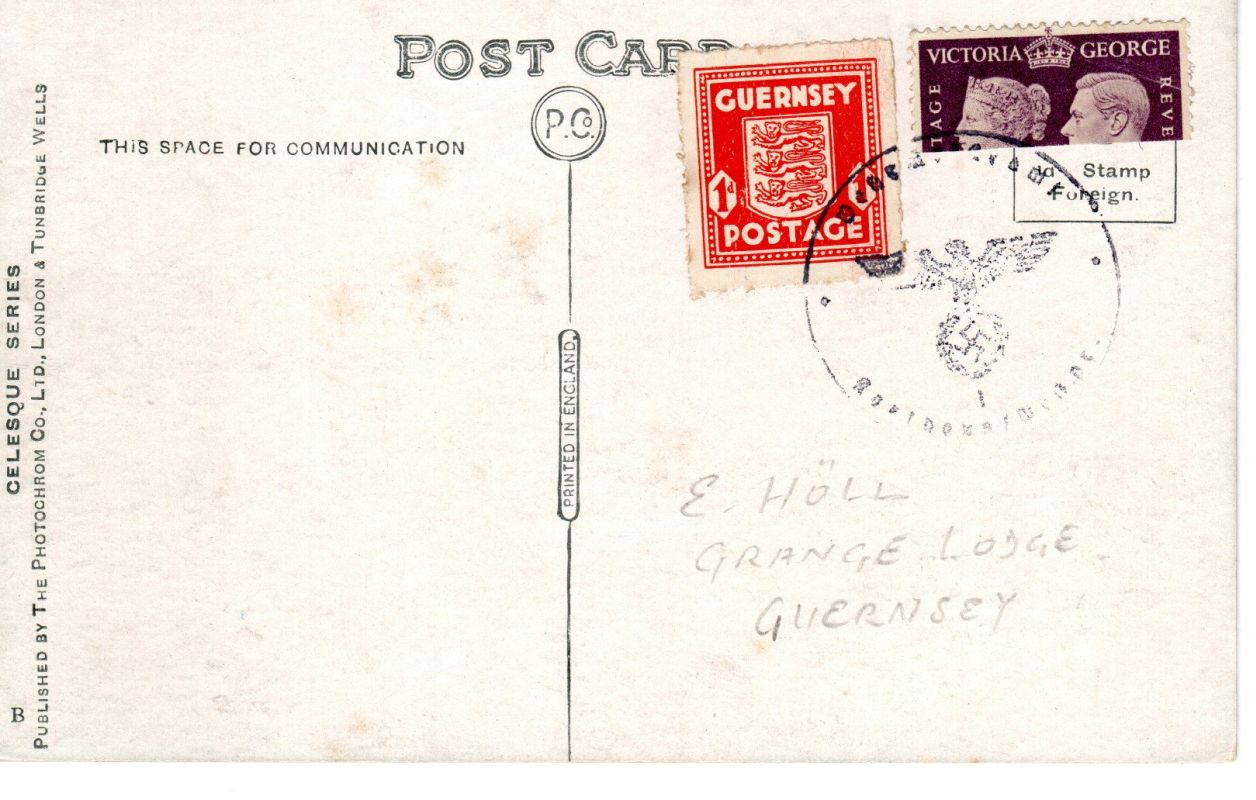 POST CAR
P.Co.
THIS SPACE FOR COMMUNICATION
GUERNSEY
1d 1d
POSTAGE
VICTORIA GEORGE
TAGE
REVE
Stamp
Foreign.
1
CELESQUE SERIES
PUBLISHED BY THE PHOTOCHROM CO., LTD., LONDON & TUNBRIDGE WELLS
PRINTED IN ENGLAND.
E. HÖLL
GRANGE LODGE
GUERNSEY
B